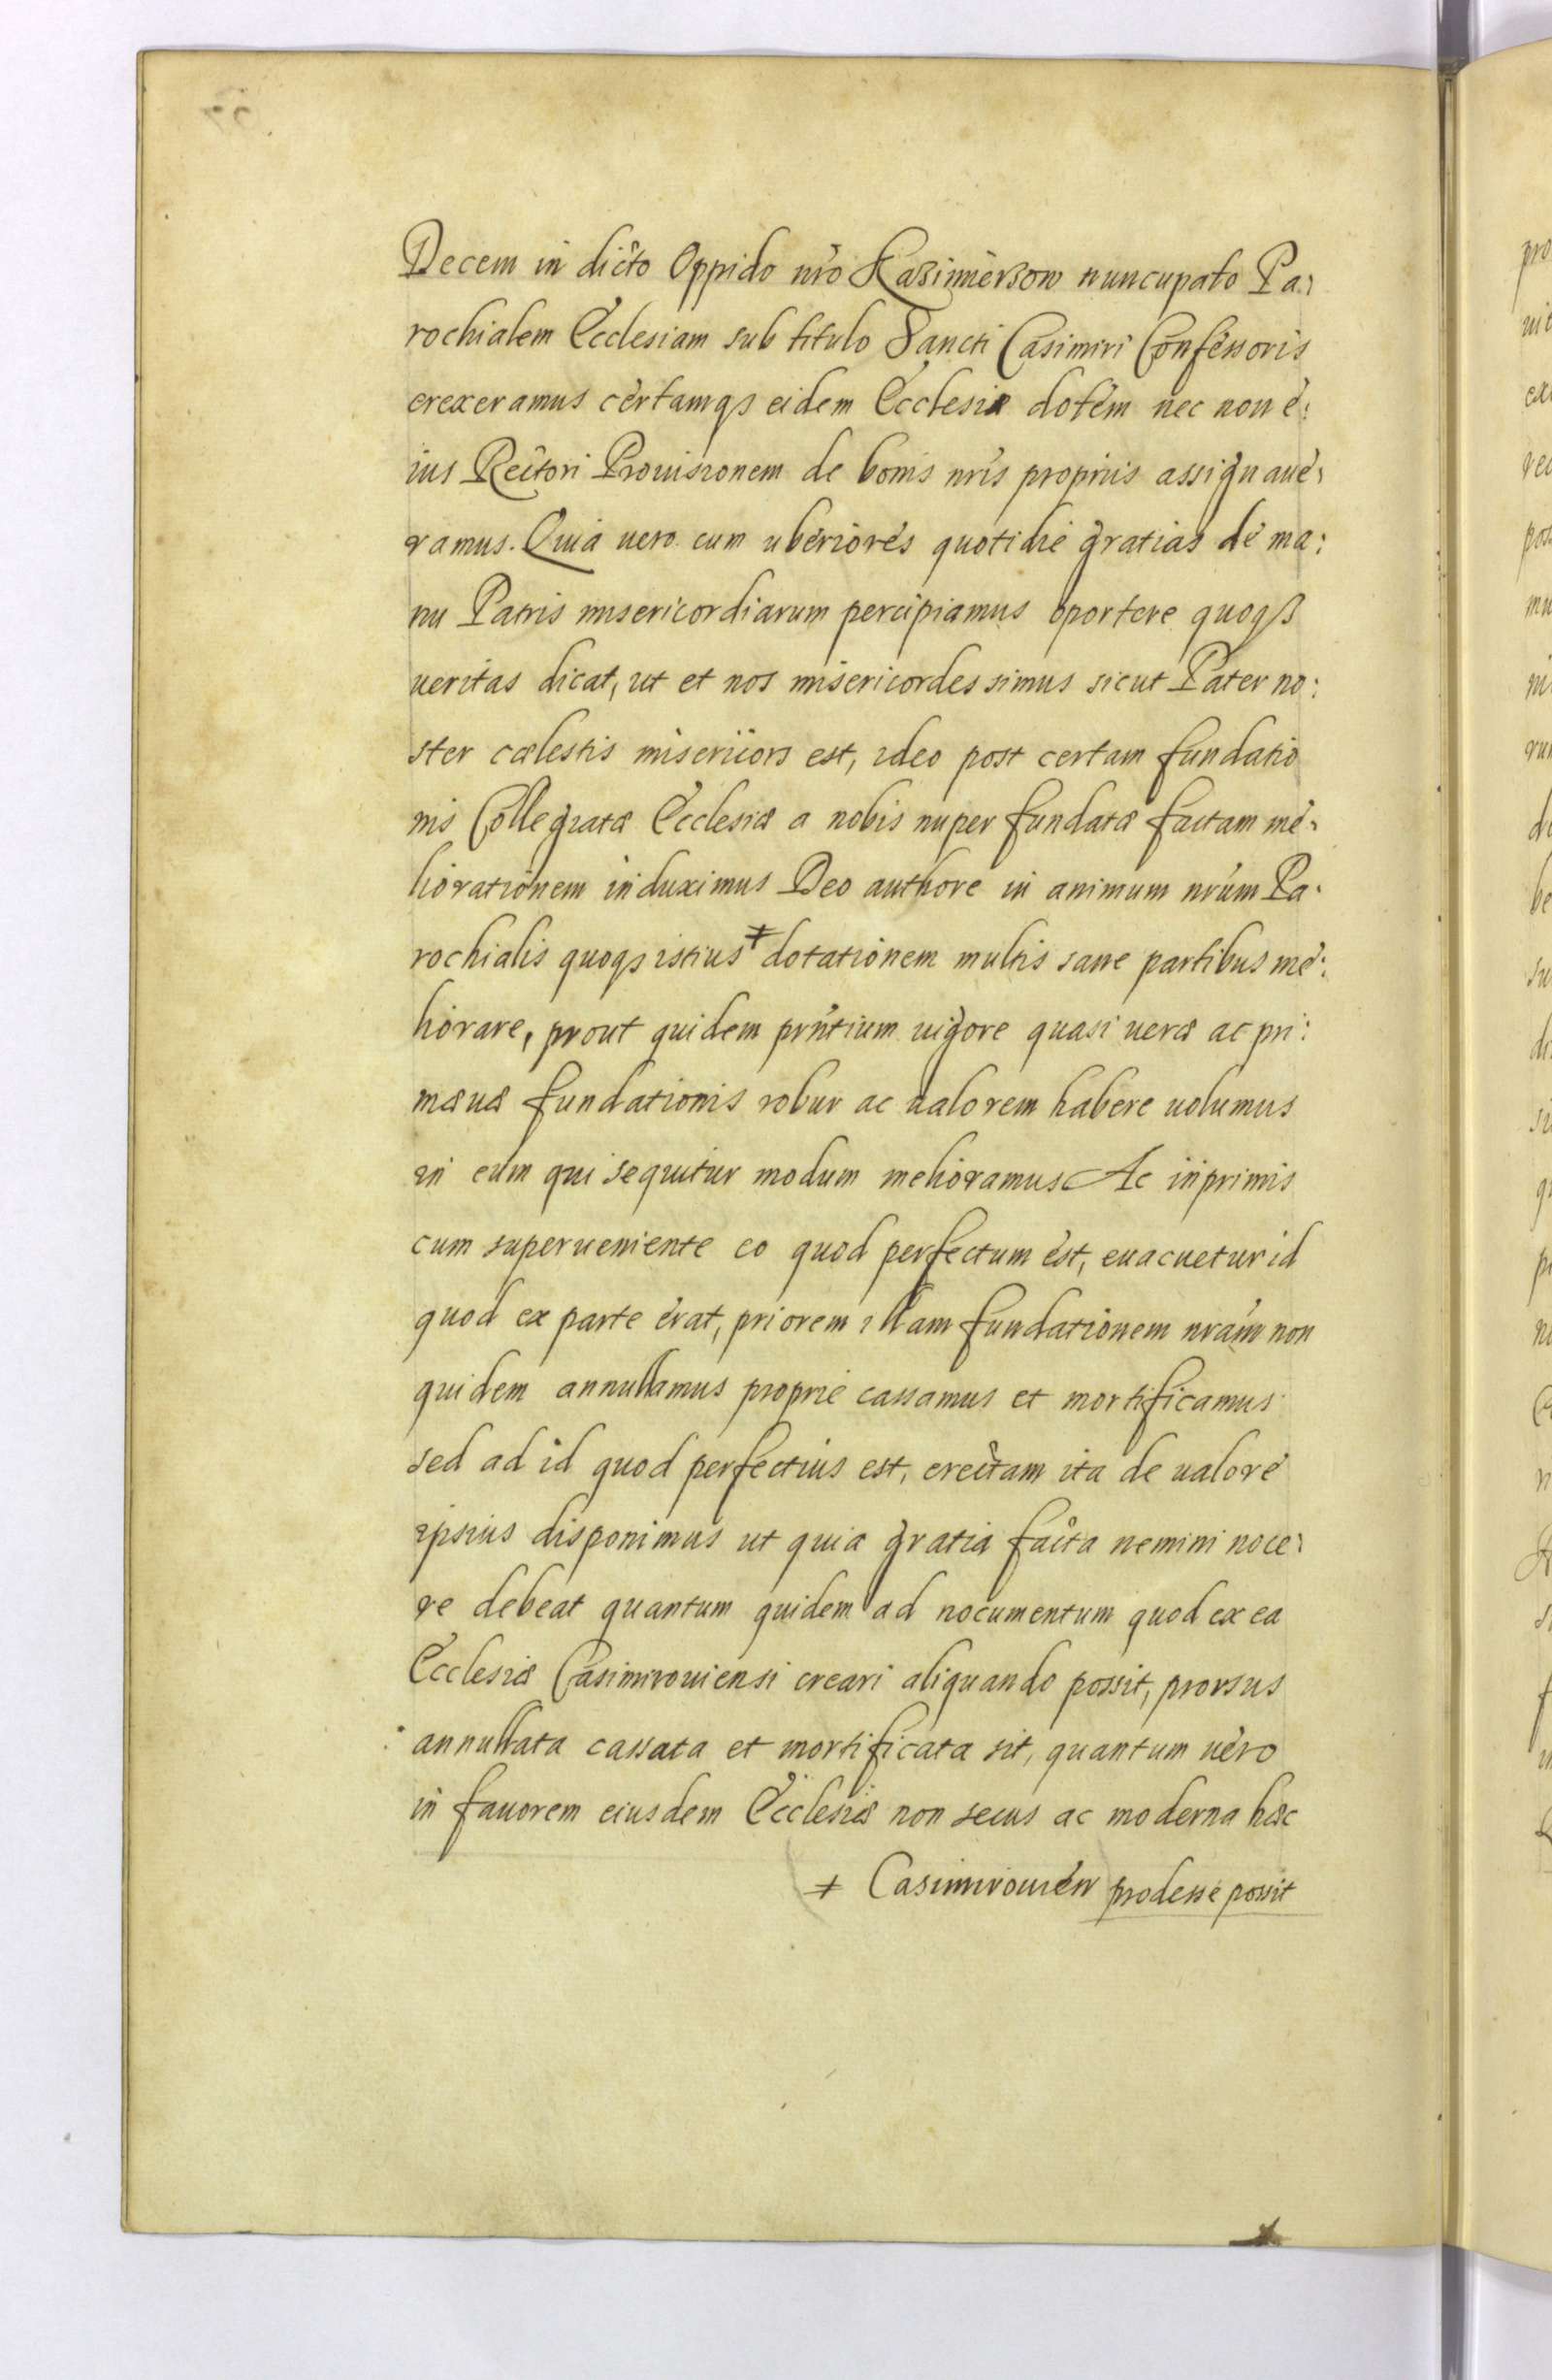 Decem in dicto Oppido nrõ Kazimierzow nuncupato Pa:
rochialem Ecclesiam sub titulo Sancti Casimiri Confessoris
erexeramus certamqs eidem Ecclesiæ dotem nec non e:
ius Rectori Prouisionem de bonis nris proprijs assignaue:
ramus. Quia uero cum uberiores quotidie gratias de ma:
nu Patris misericordiarum percipiamus oportere quoqs
ueritas dicat, ut et nos misericordes simus sicut Pater no:
ster cælestis misericors est, ideo post certam fundatio
nis Collegiatæ Ecclesiæ a nobis nuper fundatæ factam me:
liorationem induximus Deo authore in animum nrum Pa:
rochialis quoqs istius ǂ dotationem multis sane partibus me:
liorare, prout quidem prñtium uigore quasi ueræ ac pri:
mæuæ fundationis robur ac ualorem habere uolumus
in eum qui sequitur modum melioramus Ac inprimis
cum superueniente eo quod perfectum est, euacuetur id
quod ex parte erat, priorem illam fundationem nram non
quidem annullamus proprie cassamus et mortificamus
sed ad id quod perfectius est, erectam ita de ualore
ipsius disponimus ut quia gratia facta nemini noce:
re debeat quantum quidem ad nocumentum quod ex ea
Ecclesiæ Casimirouiensi creari aliquando possit, prorsus
annullata cassata et mortificata sit, quantum uero
in fauorem eiusdem Ecclesiæ non secus ac moderna hæc
ǂ Casimirouien prodesse possit